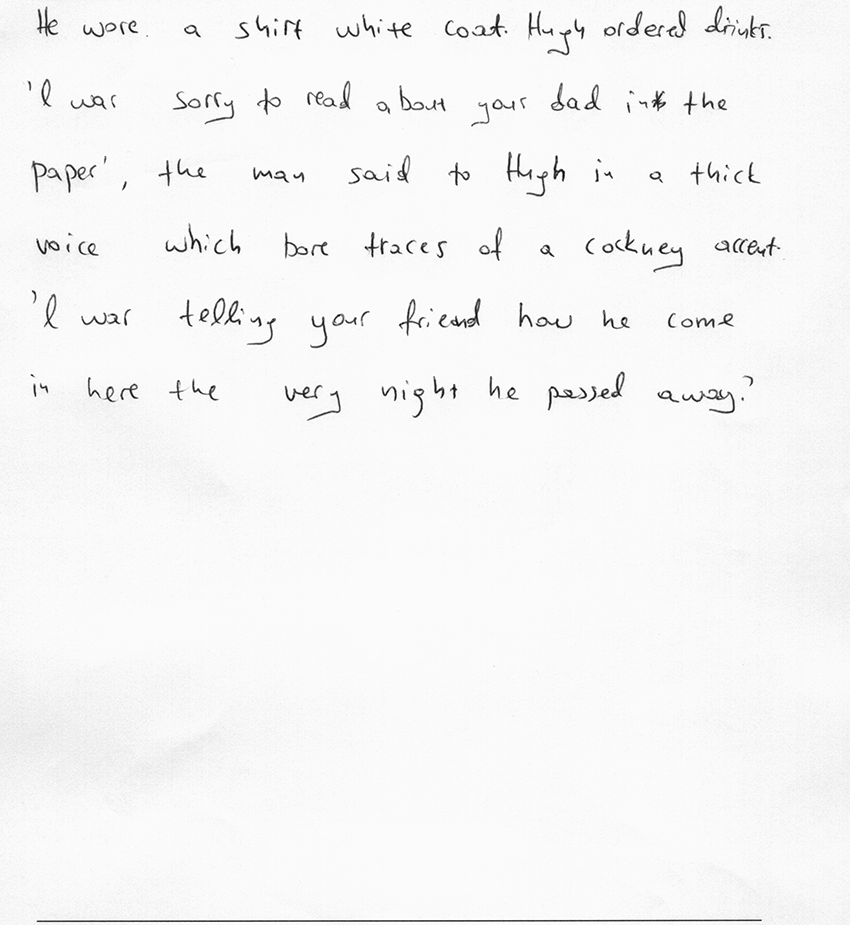 He wore a shirt white coat. Hugh ordered drinks.
'I was sorry to read about your dad in the
paper', the man said to Hugh in a thick
voice which bore traces of a cockney accent.
'I was telling your friend how he come
in here the very night he passed away.'